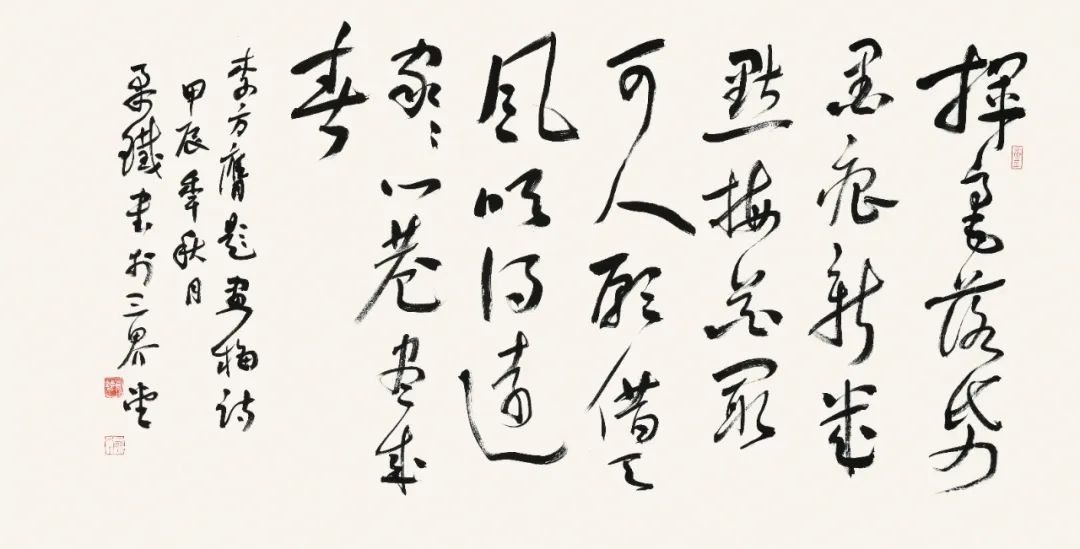 揮毫落帋
墨痕新幾
點梅花最
可人願借天
風吹得遠
家々門巷盡成
春
李方膺題畫梅詩
甲辰年秋月
鐵書於三界堂